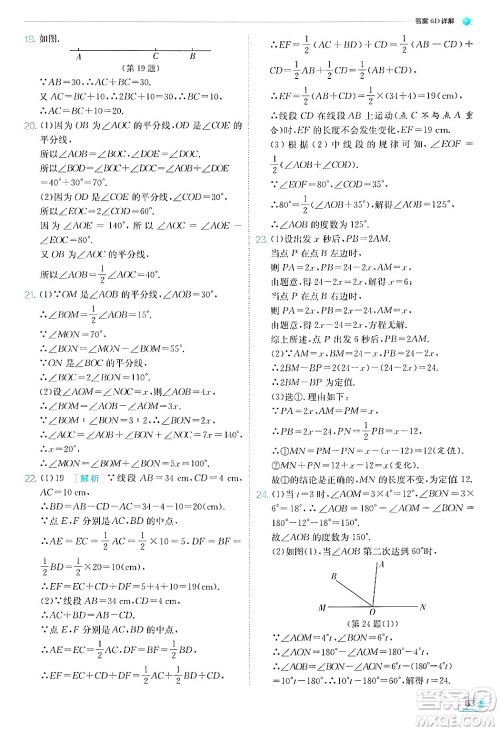 答案 61> 详解
19. 如图.
(第 19 题)
∵AB=30,∴AC+BC=30.
又∵AC−BC=10,
∴AC=BC+10,∴2BC+10=30,
∴BC=10,∴AC=BC+10=20.
20. (1)因为 OB 为∠AOC 的平分线,
OD 是∠COE 的平分线,
所以∠AOB=∠BOC,∠DOE=∠COD.
所以∠BOD=∠BOC+∠DOC=∠AOB+∠DOE
=40°+30°=70°.
(2)因为 OD 是∠COE 的平分线,∠COD=30°,
所以∠COE=2∠COD=60°.
因为∠AOE=140°,
所以∠AOC=∠AOE−∠COE=80°.
又因为 OB 为∠AOC 的平分线,
所以∠AOB=1/2∠AOC=40°.
21. (1)∵OM 是∠AOB 的平分线,∠AOB=30°,
∴∠BOM=1/2∠AOB=1/2×30°=15°.
∵∠MON=70°,
∴∠BON=∠MON−∠BOM=55°.
∵ON 是∠BOC 的平分线,
∴∠NOC=∠BON=55°.
(2)设∠AOM=∠NOC=x°,则∠AOB=4x°,
∴∠BOM=∠AOB−∠AOM=3x°.
∵∠BOM:∠BON=3:2,
∴∠BON=2x°,
∴∠AOC=∠AOB+∠BON+∠NOC=7x°=140°,
∴x=20,
∴∠MON=∠BOM+∠BON=5x°=100°.
22. (1)19 [解析] ∵线段 AB=34 cm,CD=4 cm,
AC=10 cm,
∴BD=AB−AC−CD=34−10−4=20(cm).
∵点 E,F 分别是 AC,BD 的中点,
∴CE=1/2AC=1/2×10=5(cm),DF=1/2BD=
1/2×20=10(cm),
∴EF=CE+CD+DF=5+4+10=19(cm).
(2)不变.∵线段 AB=34 cm,线段 CD=4 cm,
∴AC+BD=AB−CD=34−4=30(cm).
∵点 E,F 分别是 AC,BD 的中点,
∴CE=1/2AC,DF=1/2BD,
∴EF=CE+CD+DF=1/2AC+CD+1/2BD,
∴EF=1/2(AC+BD)+CD,
∴EF=1/2×30+4=19(cm),
∴线段 CD 在线段 AB 上移动(点 C 不与点 A 重
合)时,EF 的长度不会发生变化,EF=19 cm.
(3)根据(2)中线段的规律,可得∠EOF=
1/2(∠AOB+∠COD).
∵∠EOF=80°,∠COD=35°,
∴80°=1/2(∠AOB+35°),解得∠AOB=125°,
∴∠AOB 的度数为125°.
23. (1)设出发 x 秒后,PB=2AM.
当点 P 在点 B 左边时,
则 PA=2x,PB=24−2x,AM=x,
由题意,得24−2x=2x,解得 x=6;
当点 P 在点 B 右边时,
则 PA=2x,PB=2x−24,AM=x,
由题意,得2x−24=2x,方程无解.
综上所述,点 P 出发 6 秒后,PB=2AM.
(2)∵AM=x,BM=24−x,PB=24−2x,
∴2BM−PB=2(24−x)−(24−2x)=24,
∴2BM−PB 为定值.
(3)选①.理由如下:
∵PA=2x,AM=PM=x,PB=2x−24,
∴PN=1/2PB=x−12,
∴①MN=PM−PN=x−(x−12)=12(定值).
②MA+PN=x+x−12=2x−12(变化).
故①结论是正确的,MN 的长度不变,定值为 12.
24. (1)当 t=3 时,∠AOM=6°×3=18°,
∠BON=4°×3=12°,
∴∠AOB=180°−∠AOM−∠BON
=180°−18°−12°=150°.
故∠AOB 的度数为150°.
(2)如图(1),当∠AOB 第二次达到60°时,
A
B
M
O
N
(第 24 题(1))
∵∠AOM=6°t,∠BON=4°t,
∴∠AON=180°−∠AOM=180°−6°t,
∴∠AOB=∠BON−∠AON=4°t−(180°−6°t)